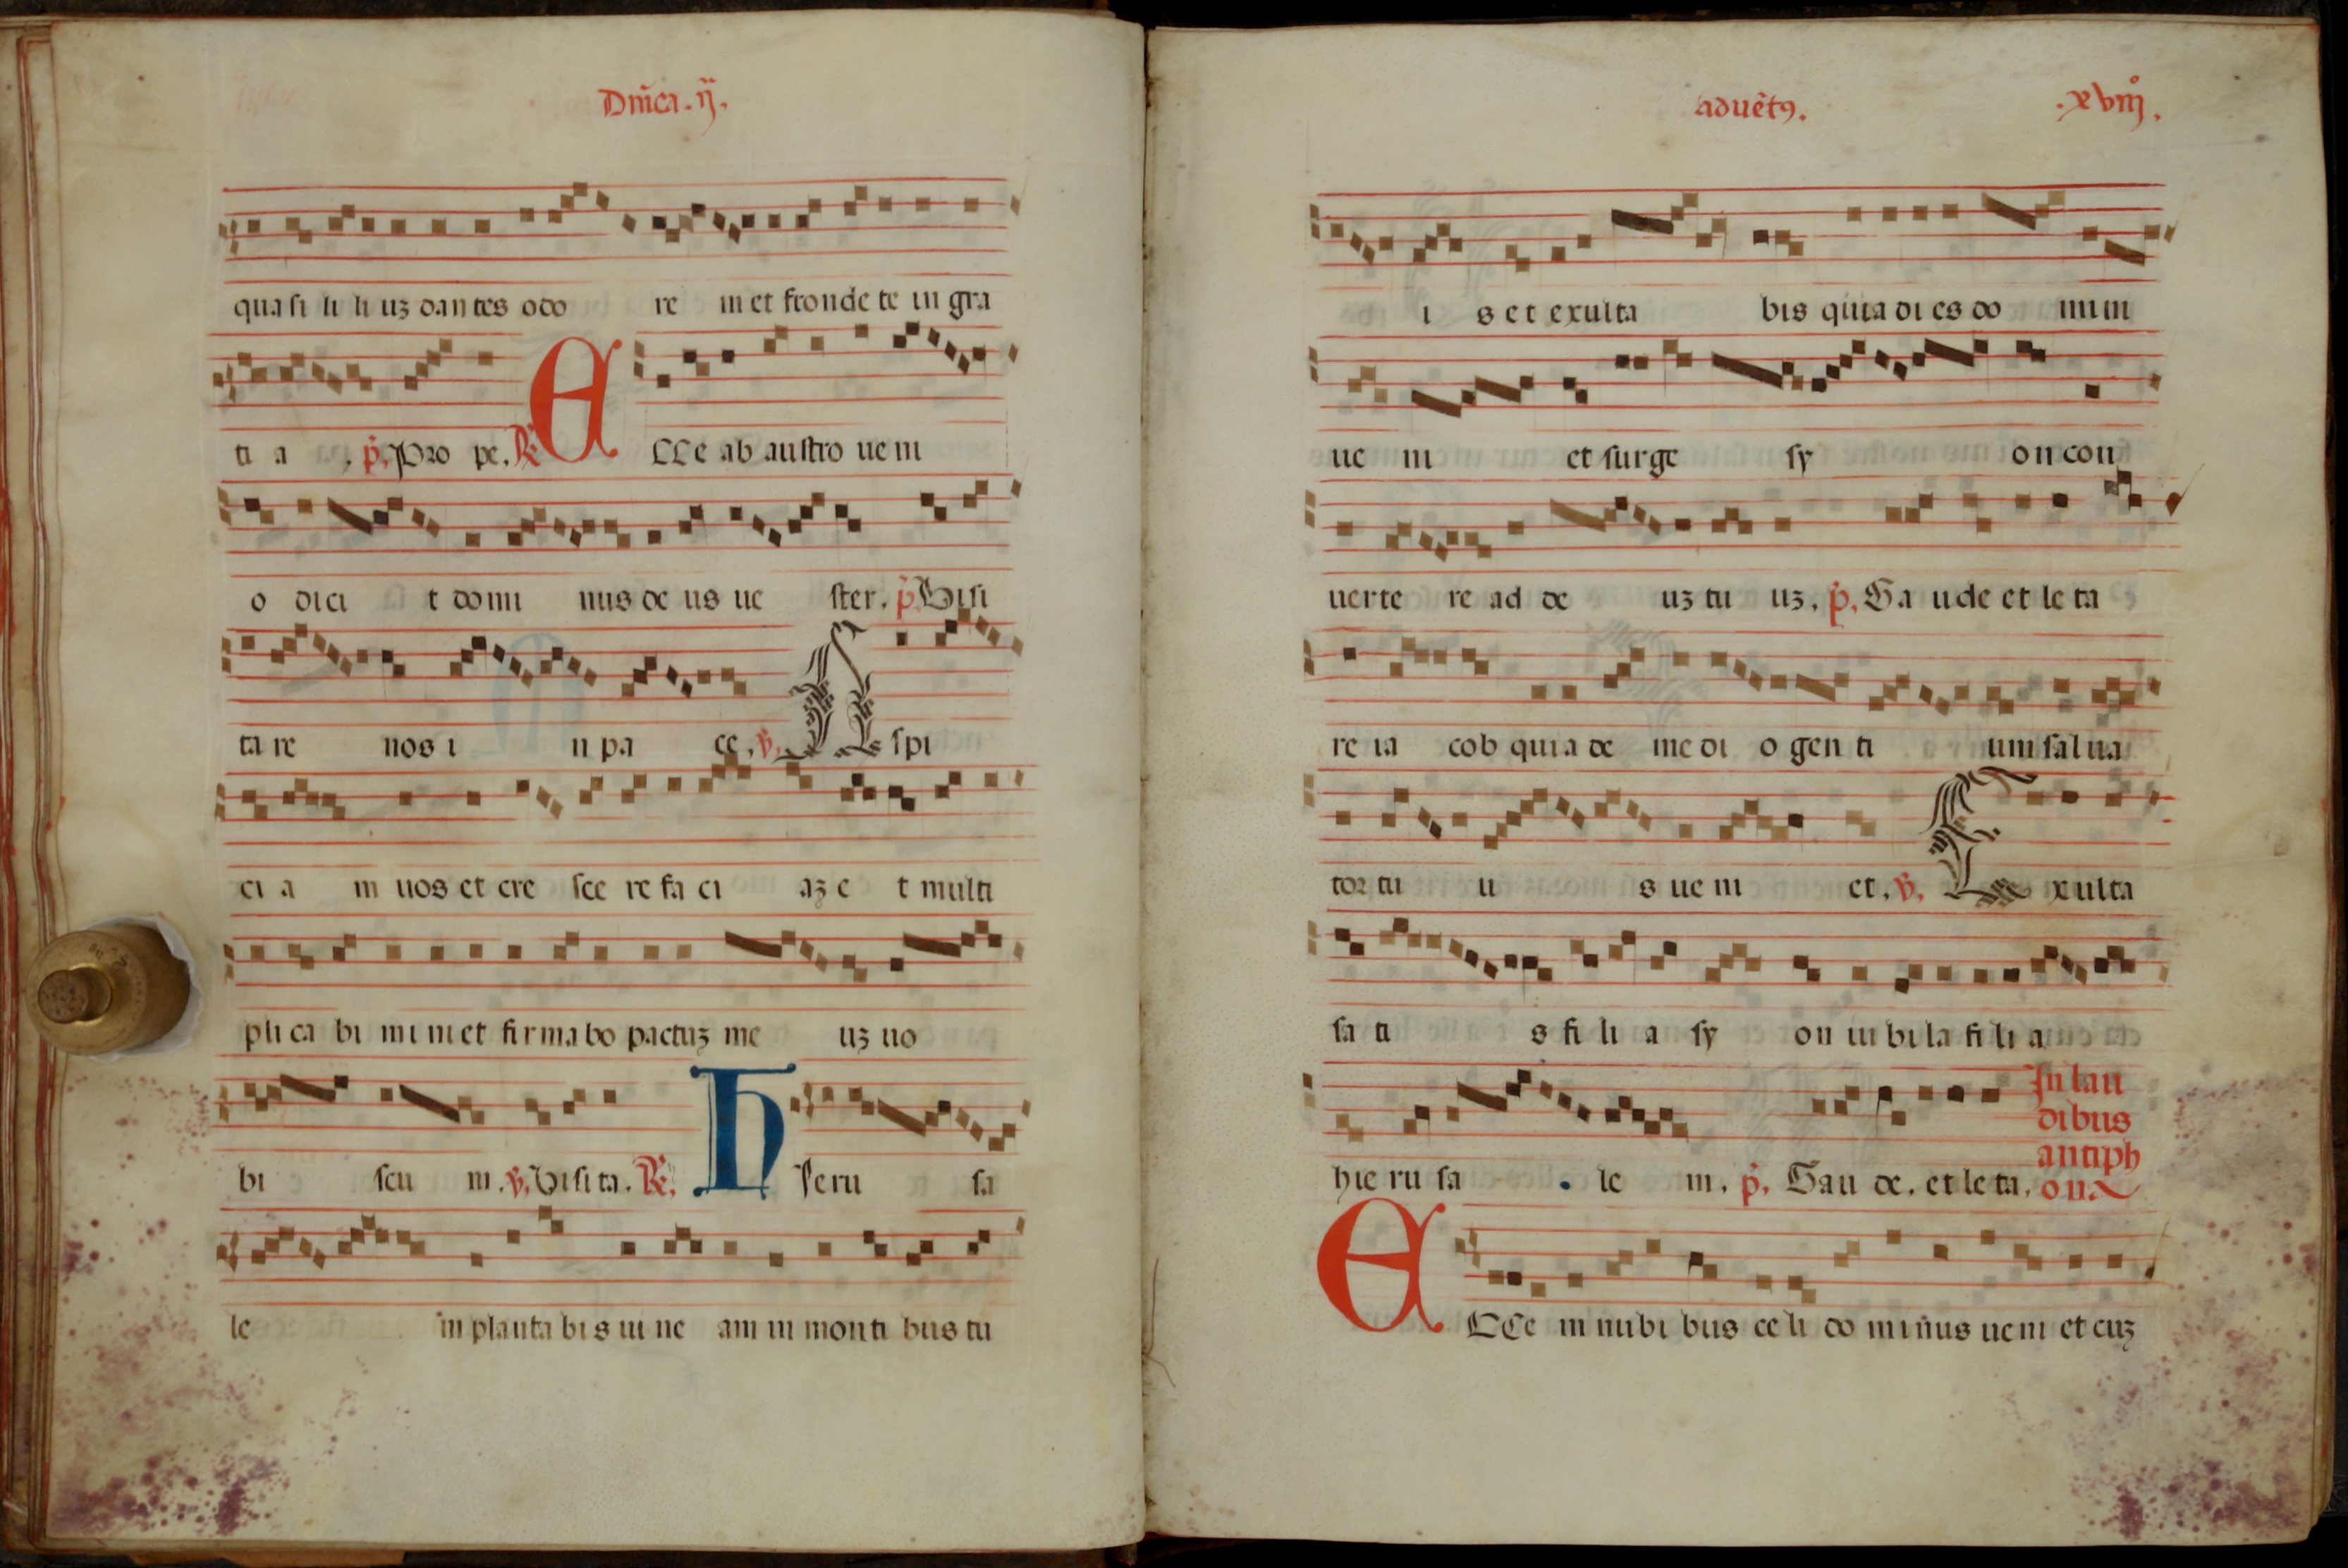 Dm̄ca . ij .
qua si li li uꝫ dan tes odo re m et fronde te in gra
ti a . p̄. Pro pe. ℟ E CCe ab austro ue ni
o dici t domi nus de us ue ster. p̄. Visi
ta re nos i n pa ce. ℣. A spi
ci a m uos et cre sce re fa ci aꝫ e t multi
pli ca bi mi ni et fir ma bo pactuꝫ me uꝫ uo
bi scu m. ℣. Visi ta. ℟. H Ieru sa
le m planta bi s ui ne am in monti bus tu
aduẽtꝰ . . xviij .
i s et exulta bis quia di es do mini
ue ni et surge sy on con
uerte re ad de uꝫ tu uꝫ . p̄. Ga ude et le ta
re ia cob quia de me di o gen ti um salua
tor tu u s ue ni et . ℣. E xulta
sa ti s fi li a sy on iu bi la fi li a
hie ru sa le m . p̄. Gau de . et le ta .
In lau
dibus
antiph
on.
E CCe in nubi bus ce li do minus ueni et cuꝫ